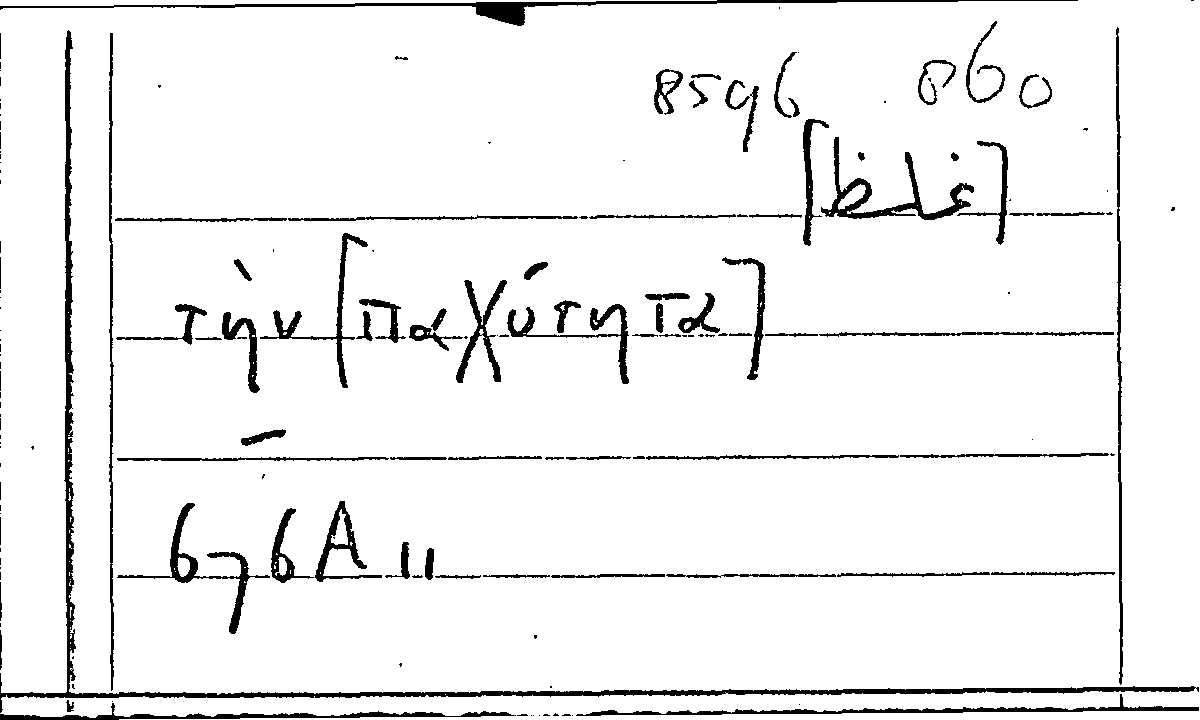 8596 060
[غلظ]
τὴν [παχύτητα]
–
676A11